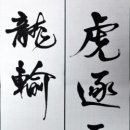 虎逐
龍輸